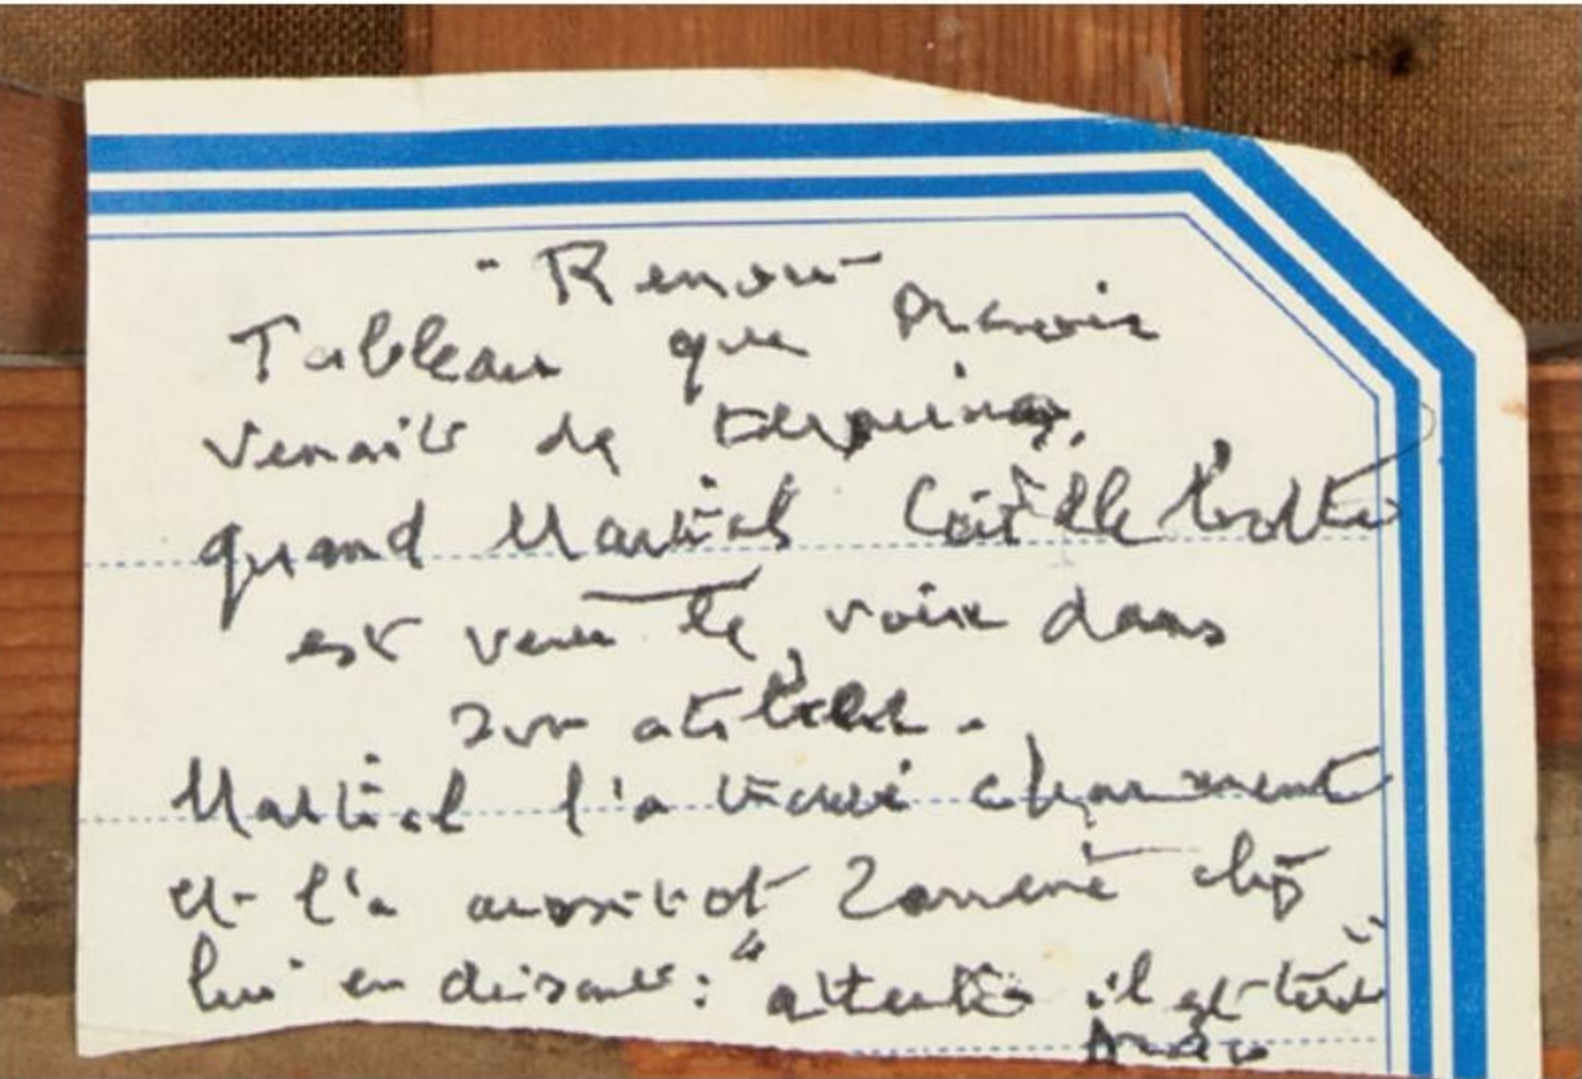 "Renoir"
Tableau que Renoir
venait de terminer,
quand Martial Caillebotte
est venu le voir dans
son atelier.
Martial l'a trouvé charmant
et l'a aussitot ramené chez
lui en disant : "attention il est très